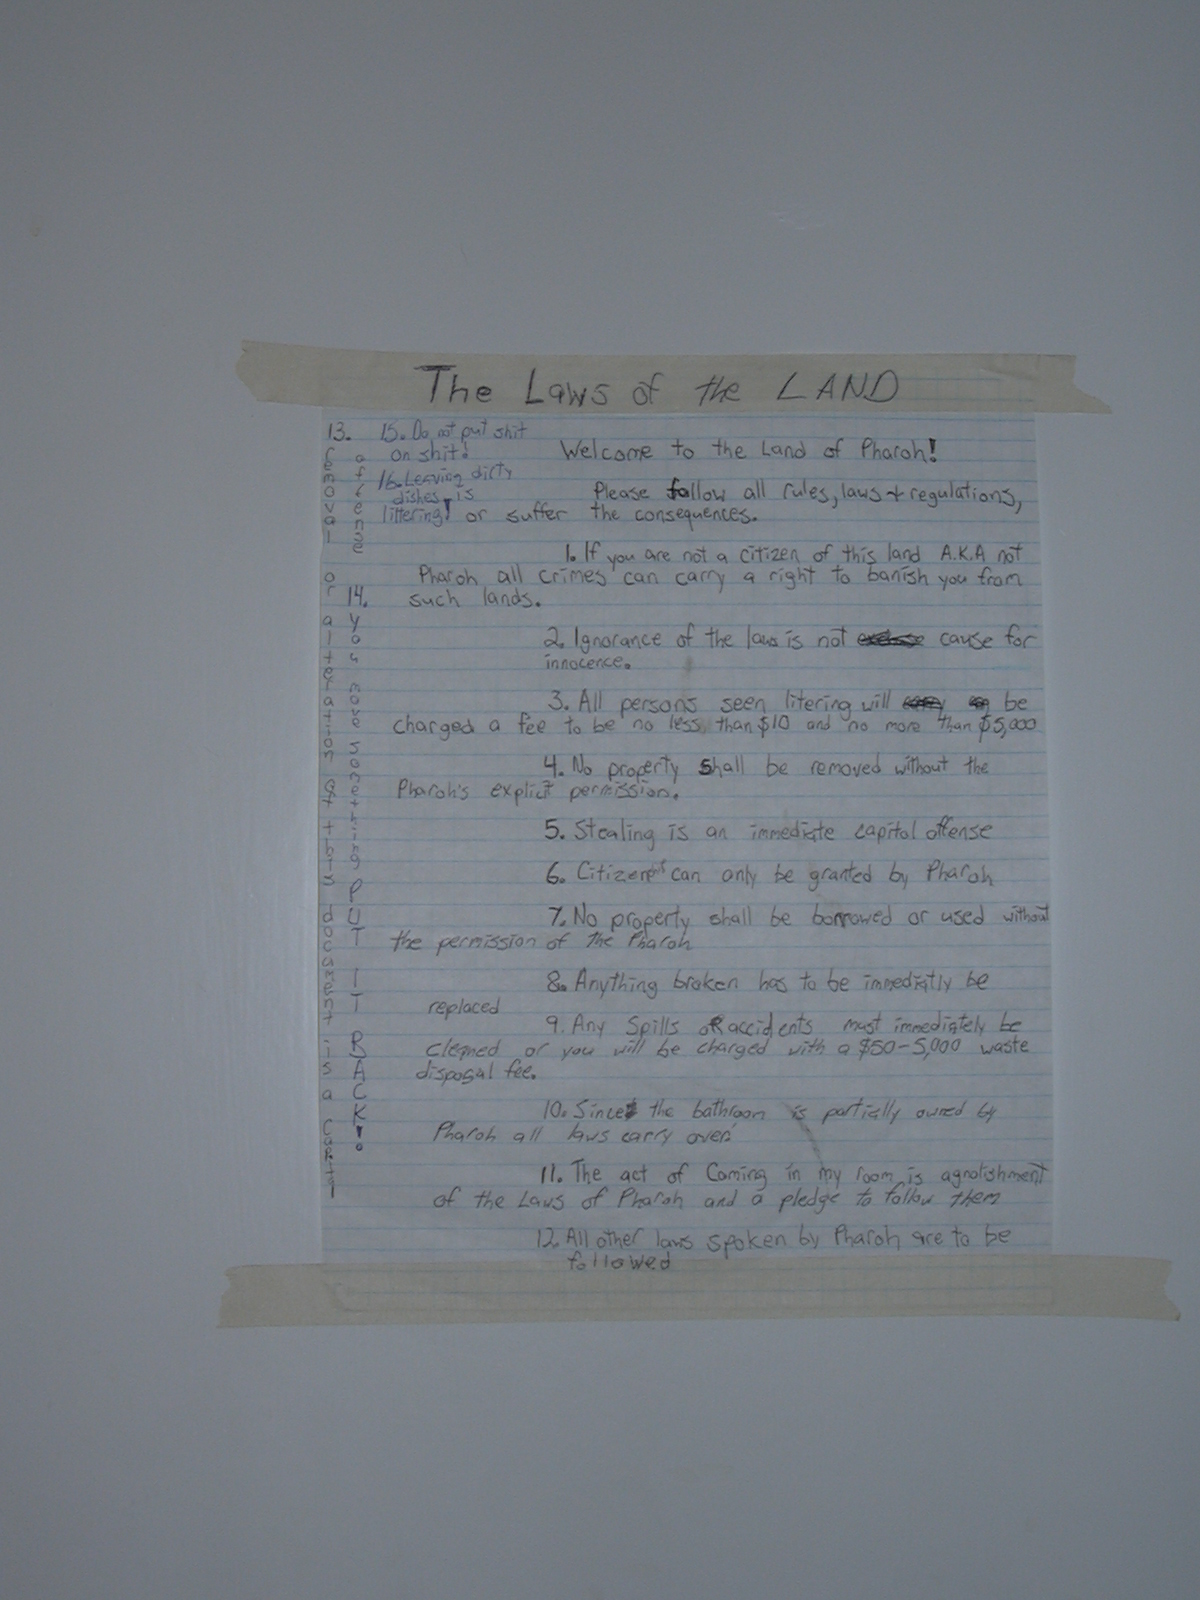 The Laws of the LAND
Welcome to the Land of Pharoh!
Please follow all rules, laws + regulations,
or suffer the consequences.
1. If you are not a citizen of this land A.K.A not
Pharoh all crimes can carry a right to banish you from
such lands.
2. Ignorance of the laws is not cause for
innocence.
3. All persons seen litering will be
charged a fee to be no less than $10 and no more than $5,000
4. No property shall be removed without the
Pharoh's explicit permission.
5. Stealing is an immediate capitol offense
6. can only be granted by Pharoh
7. No property shall be borrowed or used without
the permission of the Pharoh
8. Anything broken has to be immediatly be
replaced
9. Any Spills OR accidents must immediately be
cleaned or you will be charged with a $50-5,000 waste
disposal fee.
10. Since the bathroom is partially owned by
Pharoh all laws carry over
11. The act of Coming in my room is
of the Laws of Pharoh and a pledge to follow them
12. All other laws spoken by Pharoh are to be
followed
13.
removal or alteration of this document is a
offense
14.
you move something PUT IT BACK!
15. Do not put shit
on shit!
16. Leaving dirty
dishes is
littering!